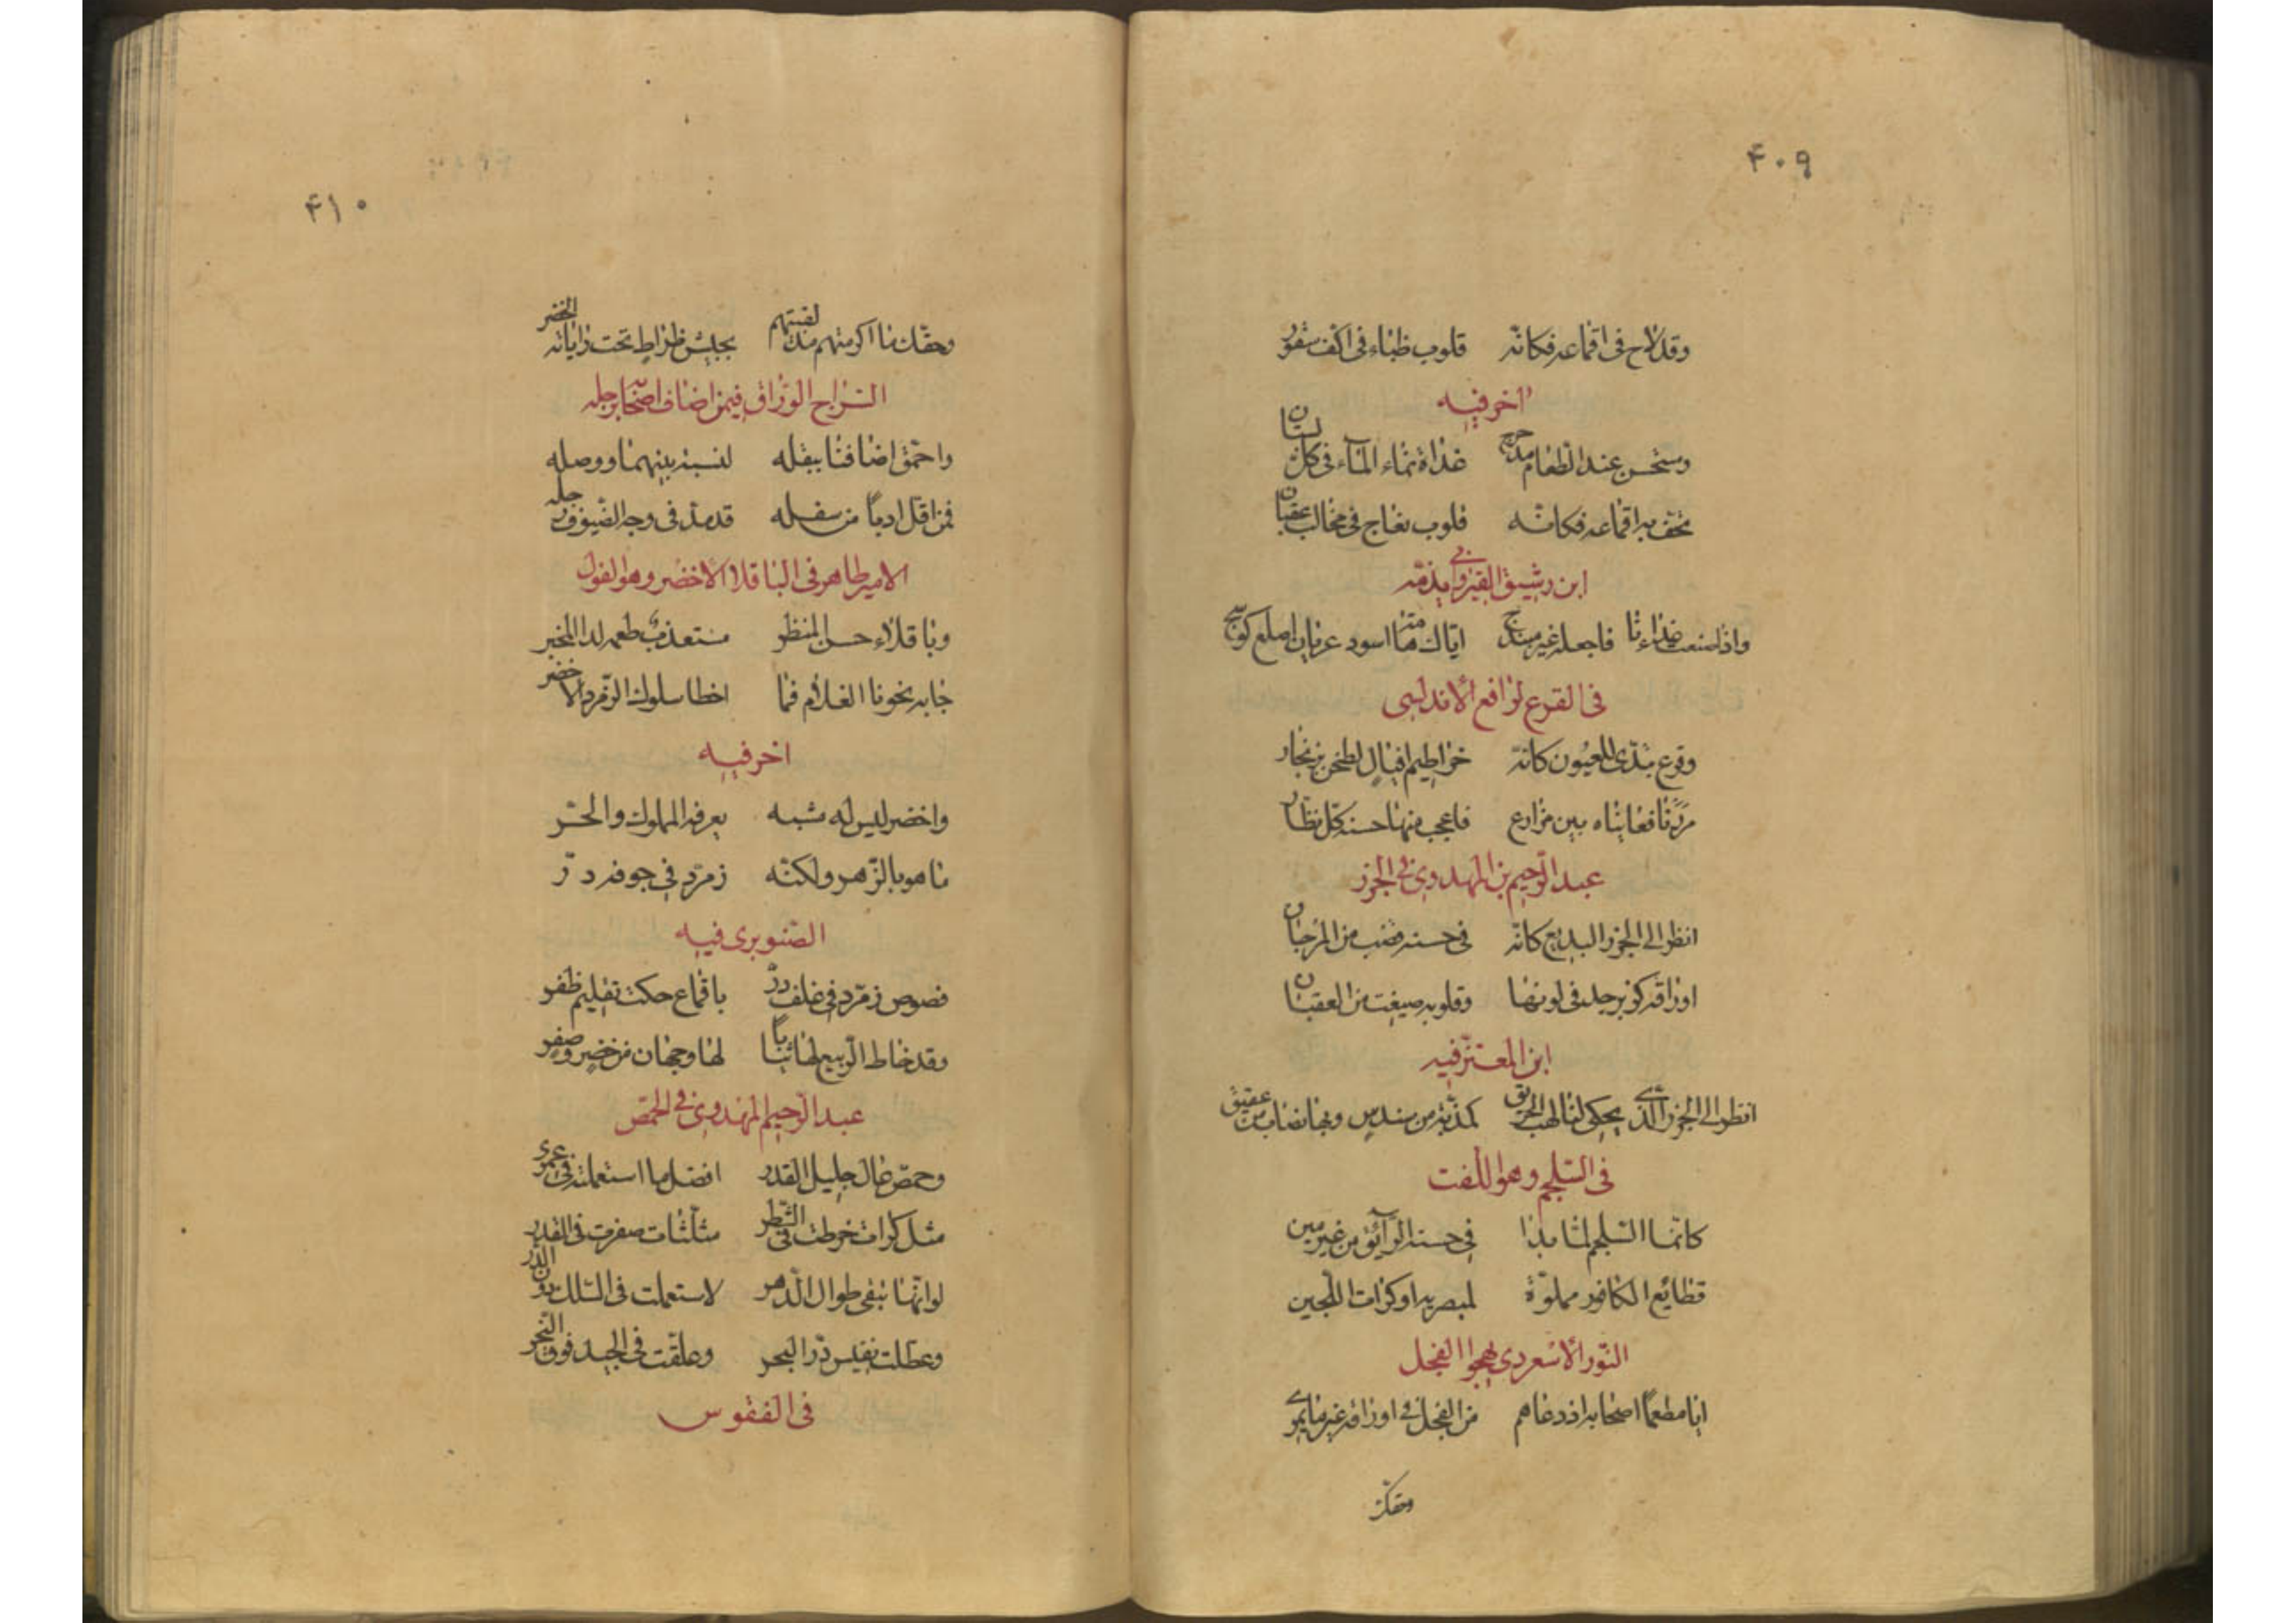 ۴۰۹
وقد لاح في اقماعه فكانه قلوب ظباء في اكف سقور
اخر فيه
ومستحسن عند الطعام مدحرج غذاه نماء المآء في كل بستان
تحف به اقماعه فكانه قلوب نعاج في مخالب عقبان
ابن رشيق القيرواني يذمّه
واذا صنعت غذاءنا فاجعله غير مبذنج اياك هامة اسود عريان اصلع كوسج
في القرع لرافع الأندلسي
وقرع تبدّى للعيون كانه خراطيم افيال لطخن بزنجار
مررنا فعايناه بين مزارع فاعجب منها حسنه كل نظار
عبد الرّحيم بن المهدوي في الجزر
انظر الى الجزر البديع كانه في حسنه قضب من المرجان
اوراقه كزبرجد في لونها وقلوبه صيغت من العقيان
ابن المعتز فيه
انظر الى الجزر الذي يحكي لنا لهب الحريق كمذبّة من سندس وبها نصاب من عقيق
في السّلجم وهو اللّفت
كانما السّلجم لمّا بدا في حسنه الرآئق من غير مين
قطايع الكافور مملوّة لمبصريه او كرات اللّجين
النّور الأسعردي يهجوا الفجل
ايا مطعما اصحابه اذ دعاهم من الفجل في اوراقه غير ما يمري
وحقك
۴۱۰
وحقك ما اكرمتهم مذ لقيتهم بجيش ظراط تحت راياته الخضر
السّراج الورّاق فيمن اضاف اصحابه رجله
واحمق اضافنا ببقله لنسبة بينهما ووصله
فمن اقل ادبا من سفله قد مد في وجه الضيوف رجله
الامير طاهر في الباقلا الأخضر وهو الفول
وباقلاء حسن المنظر مستعذب طعمه لدا المخبر
جا به نحونا الغلام فما اخطا سلوك الزّمرد الاخضر
اخر فيه
واخضر ليس له شبه يعرفه المملوك والحرّ
ما هو بالزّهر ولكنّه زمرّد في جوفه درّ
الصّنوبري فيه
فصوص زمرّد في غلف درّ باقماع حكت تقليم ظفر
وقد خاط الرّبيع لها ثيابا لها وجهان من خضر وصفر
عبد الرّحيم المهدوي في الحمّص
وحمّص غال جليل القدر افضل ما استعملته في عمري
مثل كرات خرطت في السّطر مثلّثات صفرت في القدر
لو انّها تبقى طوال الدّهر لاستعملت في السّلك دون الدّر
وعطلت نفيس درّ البحر وعلّقت في الجيد فوق النّحر
في الفقوس